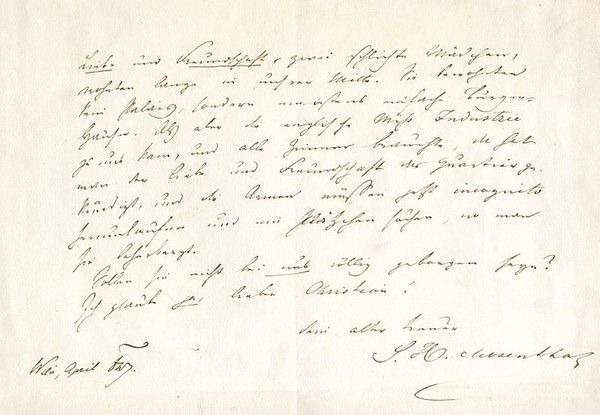 Liebe und Freundschaft, zwei schlichte Mädchen,
wohnten lange in unsrer Mitte. Sie bewohnten
kein Palais, sondern meistens einfache Bürger-
häuser. Als aber die englische Miß Industrie
zu uns kam, und alle Zimmer brauchte, da hat
man der Liebe und Freundschaft das Quartier ge-
kündigt, und die Armen müssen jetzt incognito
herumlaufen und ein Plätzchen suchen, wo man
sie beherbergt.
Sollen sie nicht bei uns völlig geborgen seyn?
Ich glaube ja, lieber
Dein alter treuer
Wien, April
S. H. Mosenthal